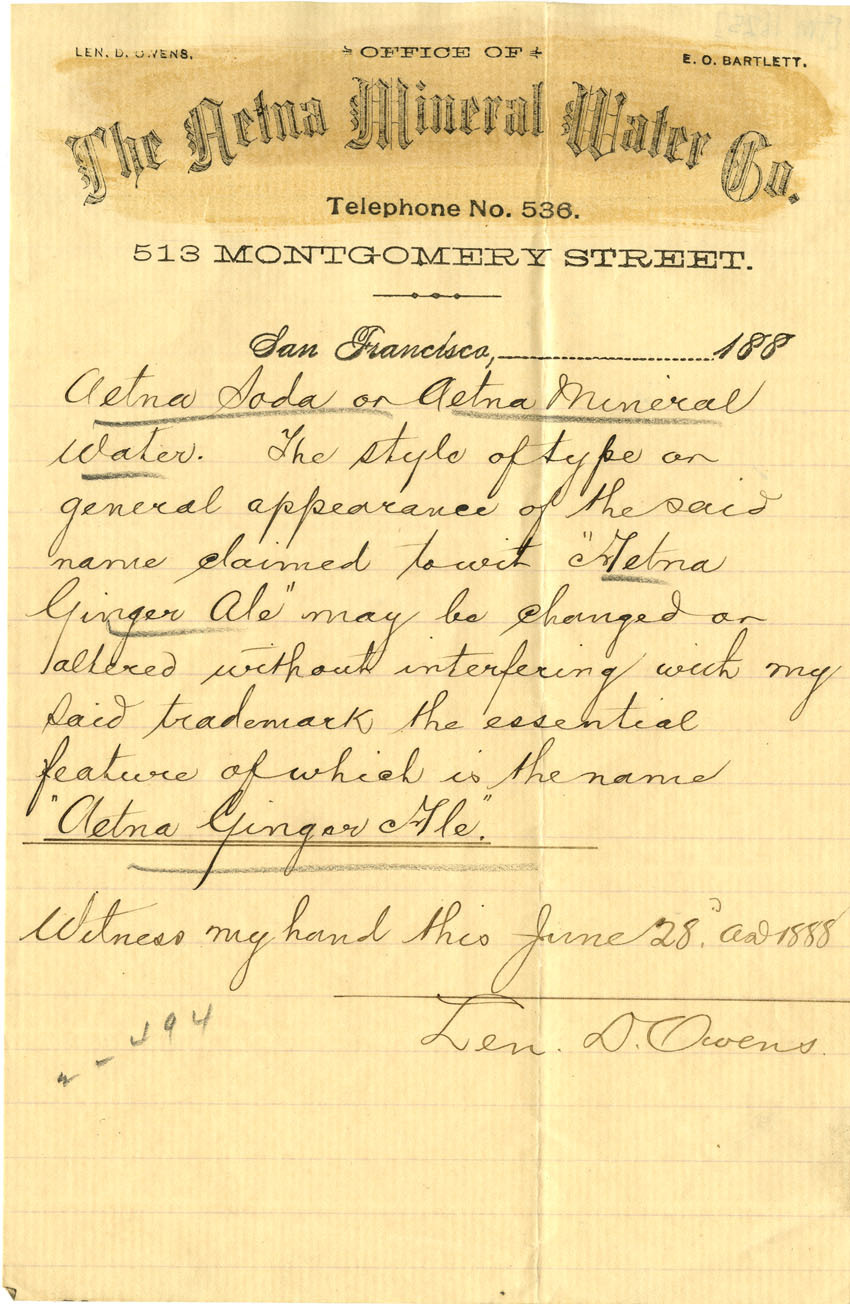 LEN. D. OWENS.
OFFICE OF
E. O. BARTLETT.
The Aetna Mineral Water Co.
Telephone No. 536.
513 MONTGOMERY STREET.
San Francisco, 188
Aetna Soda or Aetna Mineral
Water. The style of type or
general appearance of the said
name claimed towit "Aetna
Ginger Ale" may be changed or
altered without interfering with my
said trademark the essential
feature of which is the name
"Aetna Ginger Ale."
Witness my hand this June 28. AD 1888
Len. D. Owens.
494